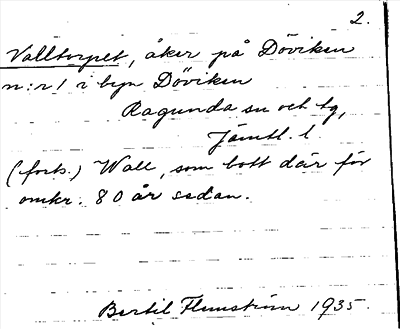 2.
Valltorpet, åker på Döviken
n:r 1 i byn Döviken
Ragunda sn och tg,
Jämtl. l.
(forts.) Wall, som bott där för
omkr. 80 år sedan.
Bertil Flemström 1935.